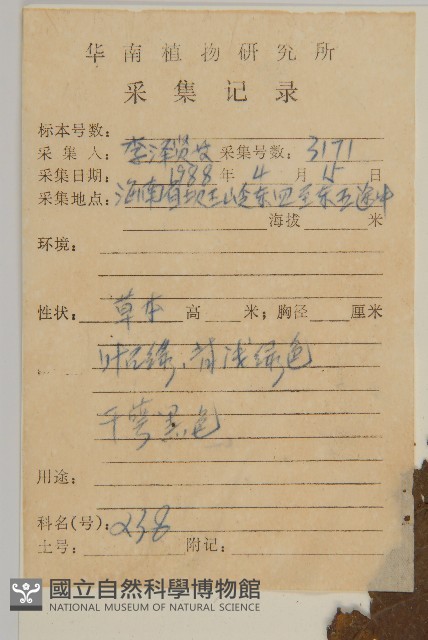 华南植物研究所
采集记录
标本号数：
采集人：李泽贤 采集号数：3171
采集日期：1988年4月15日
采集地点：海南省坝王岭东四至东五途中
海拔 米
环境：
性状：草本 高 米；胸径 厘米
叶 绿，背浅绿色
干 黑色
用途：
科名(号)：238
土号： 附记：
國立自然科學博物館
NATIONAL MUSEUM OF NATURAL SCIENCE